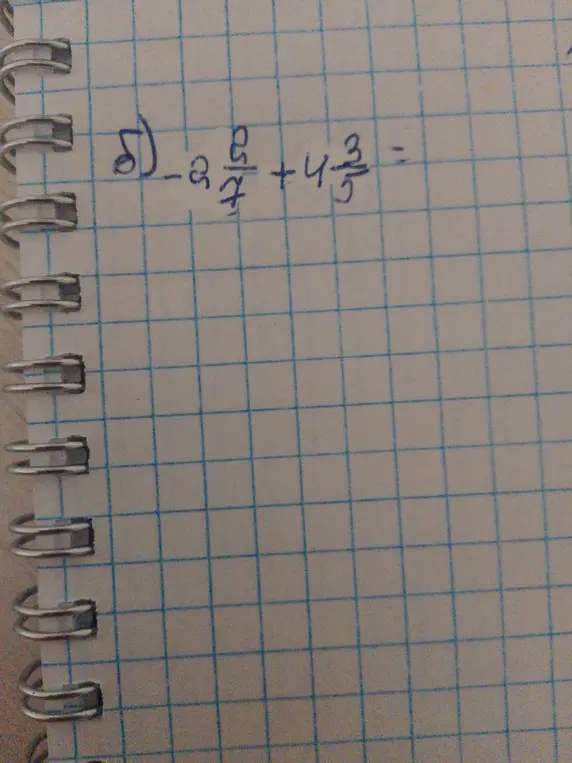 б) -2 2/7 + 4 3/5 =